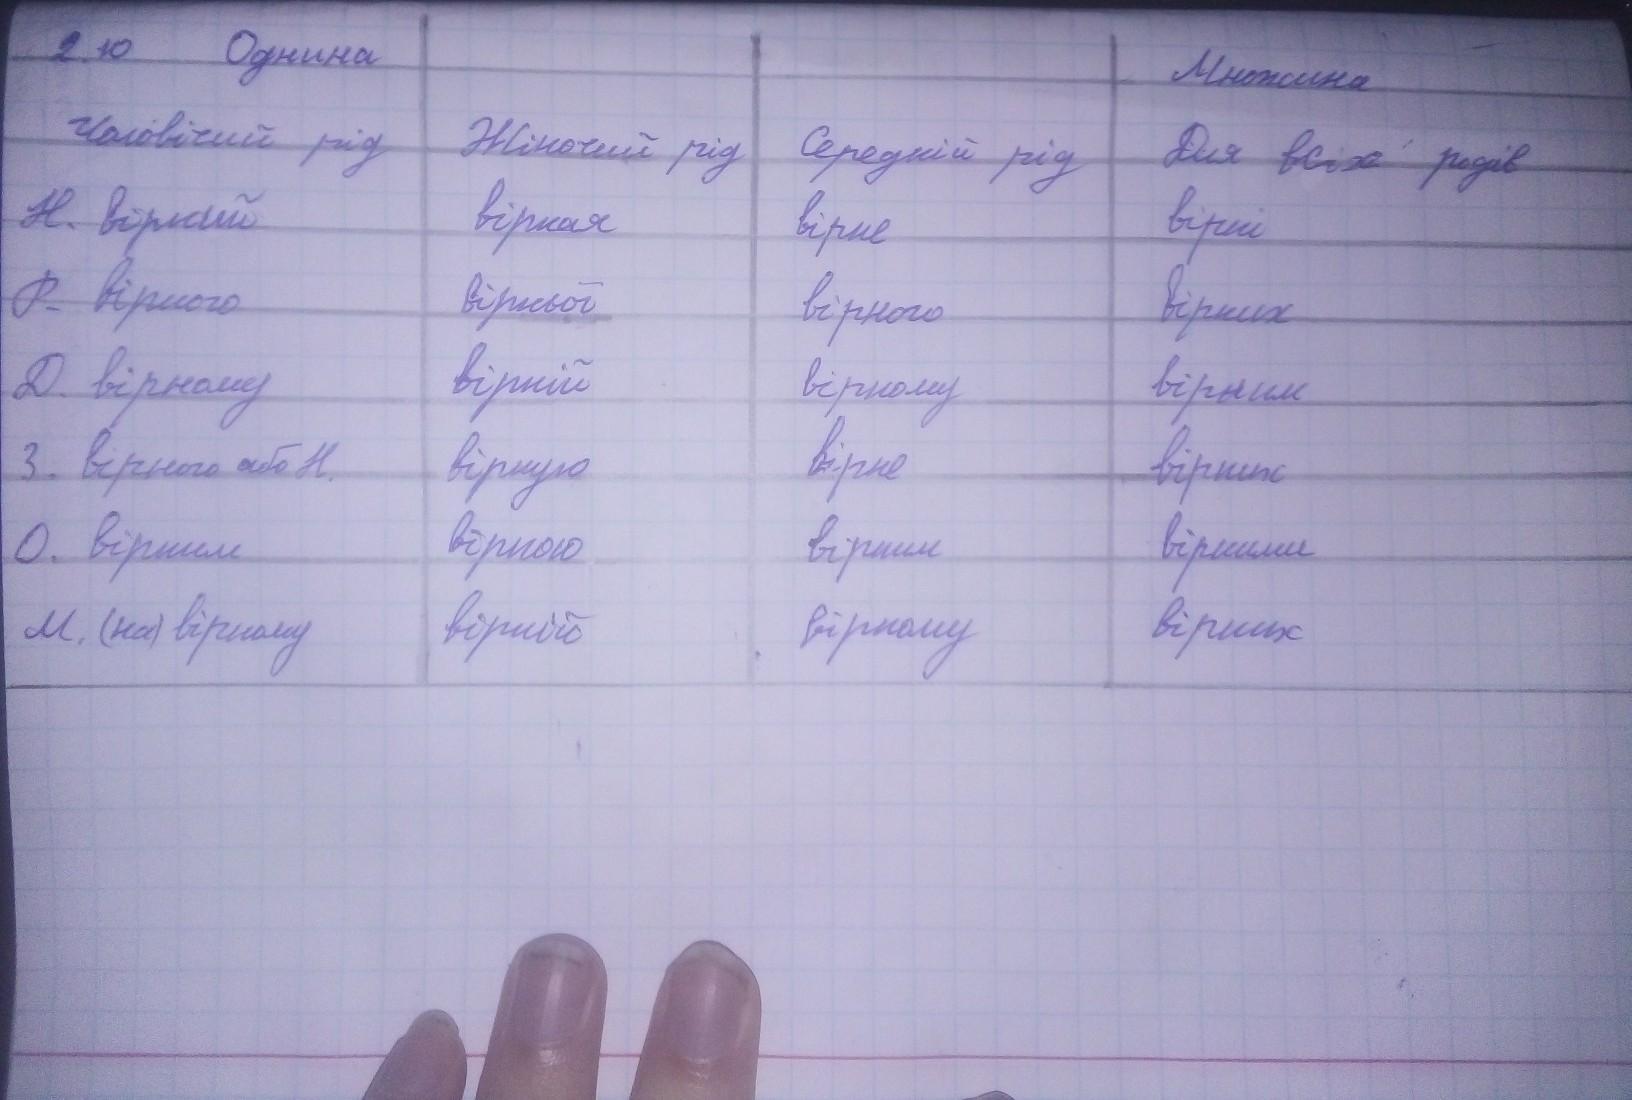 2.10 Однина Множина
Чоловічий рід Жіночий рід Середній рід Для всіх родів
Н. вірний вірная вірне вірні
Р. вірного вірньої вірного вірних
Д. вірному вірній вірному вірним
З. вірного або Н. вірную вірне вірних
О. вірним вірною вірним вірними
М. (на) вірному вірній вірному вірних